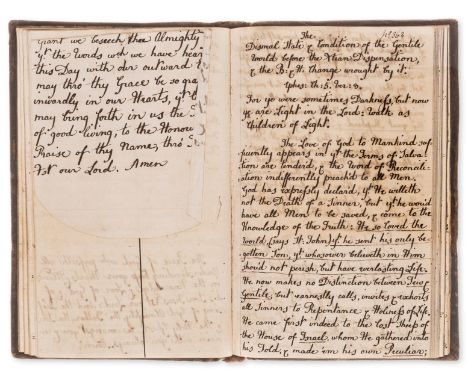 Grant we beseech thee Almighty
yt. the Words wch we have hear
this Day with our outward
may thrô thy Grace be so gra
inwardly in our Hearts, yt.
may bring forth in us the
of good living, to the Honou
Praise of thy Name, thrô
Xst our Lord. Amen
The
Dismal State & Condition of the Gentile
World before the Xtian Dispensation,
& the B: H: change wrought by it:
Ephes: th: 5. Ver: 8.
For ye were sometimes Darkness, but now
ye are Light in the Lord: walk as
Children of Light.
The Love of God to Mankind suf-
ficiently appears in yt. the Terms of Salva-
tion are tender'd, & the Word of Reconcili-
ation indifferently preach'd to all Men.
God has expressly declar'd, yt. He willeth
not the Death of a Sinner, but yt. he wou'd
have all Men to be saved, & come to the
Knowledge of the Truth: He so loved the
World, (says St. John) yt. he sent his only be-
gotten Son, yt. whosoever believeth in Him
shou'd not perish, but have everlasting Life.
He now makes no Distinction between Jew &
Gentile, but earnestly calls, invites & exhorts
all Sinners to Repentance & Holiness of Life.
He came first indeed to the lost Sheep of
the House of Israel, whom He gathered into
his Fold, & made 'em his own Peculiar;